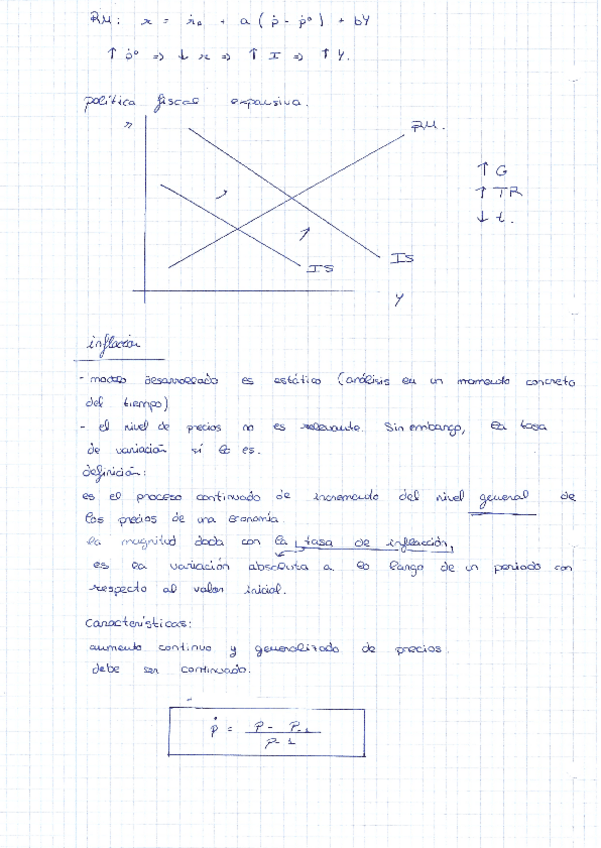 RM: r = r₀ + a ( ṗ - ṗ⁰ ) + bY
↑ ṗ⁰ => ↓ r => ↑ I => ↑ Y.
política fiscal expansiva.
r
RM.
↑ G
↑ TR
↓ t.
IS
IS
Y
inflación
- modelo desarrollado es estático (análisis en un momento concreto
del tiempo)
- el nivel de precios no es relevante. Sin embargo, la tasa
de variación sí lo es.
definición:
es el proceso continuado de incremento del nivel general de
los precios de una economía.
la magnitud dada con la tasa de inflación,
es la variación absoluta a lo largo de un periodo con
respecto al valor inicial.
Características:
aumento continuo y generalizado de precios.
debe ser continuado.
ṗ = P - P-1 / P-1